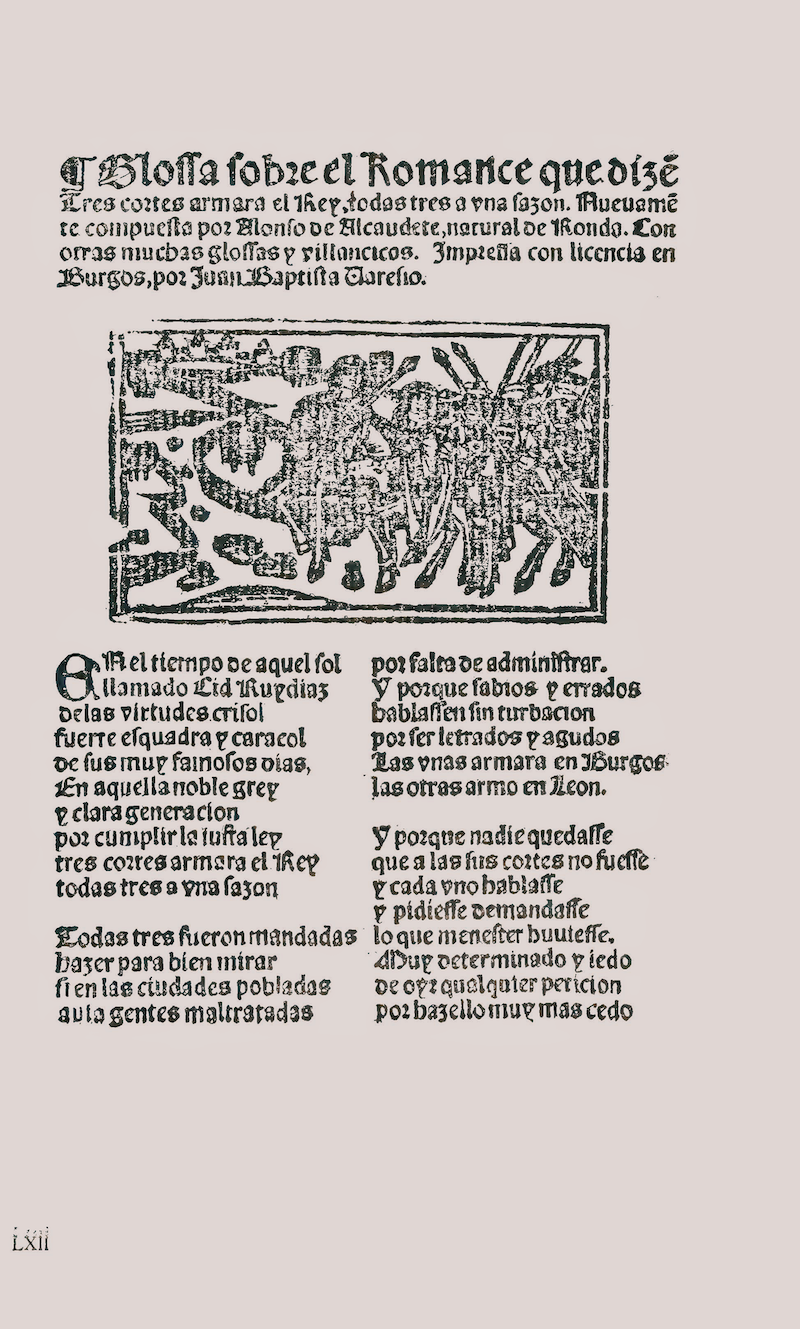 ¶ Glossa sobre el Romance que dizẽ
Tres cortes armara el Rey, todas tres a vna sazon. Nueuamẽ
te compuesta por Alonso de Alcaudete, natural de Ronda. Con
otras muchas glossas y villancicos. Impressa con licencia en
Burgos, por Juan Baptista Varesio.
EN el tiempo de aquel sol
llamado Cid Ruydiaz
delas virtudes crisol
fuerte esquadra y caracol
de sus muy famosos dias,
En aquella noble grey
y clara generacion
por cumplir la iusta ley
tres cortes armara el Rey
todas tres a vna sazon
Todas tres fueron mandadas
hazer para bien mirar
si en las ciudades pobladas
auia gentes maltratadas
por falta de administrar.
Y porque sabios y errados
hablassen sin turbacion
por ser letrados y agudos
Las vnas armara en Burgos
las otras armo en Leon.
Y porque nadie quedasse
que a las sus cortes no fuesse
y cada vno hablasse
y pidiesse demandasse
lo que menester huuiesse.
Muy determinado y ledo
de oyr qualquier peticion
por hazello muy mas cedo
LXII